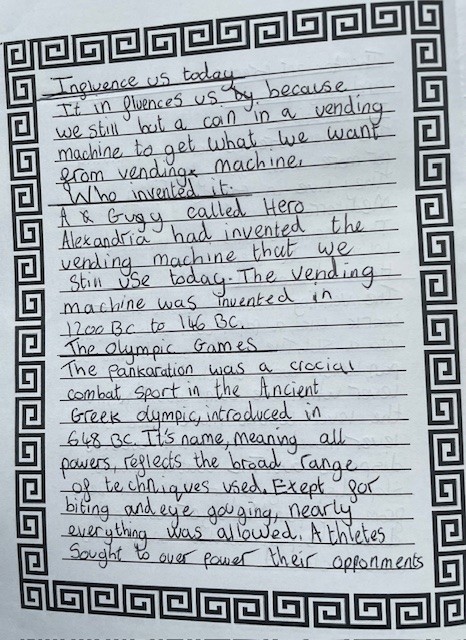 Ingluence us today
It in fluences us by because
we still but a coin in a vending
machine to get what we want
from vending machine.
Who invented it.
A Guyy called Hero
Alexandria had invented the
vending machine that we
Still use today. The vending
machine was invented in
1200 BC to 146 BC.
The Olympic Games
The Pankaration was a crocial
combat sport in the Ancient
Greek olympic, introduced in
648 BC. It's name, meaning all
powers, reflects the broad range
of techniques used. Exept for
biting and eye gouging, nearly
everything was allowed. Athletes
Sought to over power their opponments